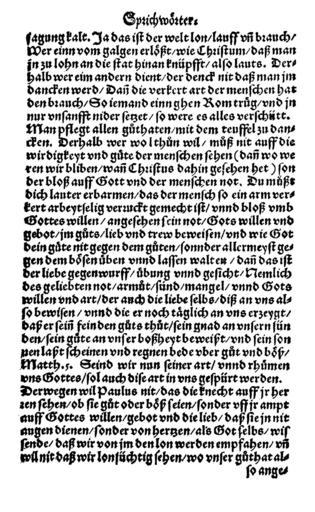 Sprichwörter.
sagung kalt. Ja das ist der welt lon/ lauff vñ brauch/
Wer einn vom galgen erlößt/ wie Christum/ daß man
jn zu lohn an die stat hinan knüpfft/ also lauts. Der-
halb wer eim andern dient/ der denck nit daß man jm
dancken werd/ Dañ die verkert art der menschen hat
den brauch/ So iemand einn ghen Rom trüg/ vnd jn
nur vnsanfft nider setzet/ so were es alles verschütt.
Man pflegt allen gůthaten/ mit dem teuffel zu dan-
cken. Derhalb wer wol thůn wil/ můß nit auff die
wirdigkeyt vnd güte der menschen sehen (dañ wo we
ren wir bliben/ wañ Christus dahin gesehen het) son
der bloß auff Gott vnd der menschen not. Du můst
dich lauter erbarmen/ das der mensch so ein arm ver-
kert arbeytselig verruckt gemecht ist/ vnnd bloß vmb
Gottes willen/ angesehen sein not/ Gots willen vnd
gebot/ jm gůts/ lieb vnd trew beweisen/ vnd wie Got
dein güte nit gegen dem gůten/ sonnder allermeyst ge-
gen dem bösen üben vnnd lassen walten/ dañ das ist
der liebe gegenwurff/ übung vnnd gesicht/ Nemlich
des geliebten not/ armůt/ sünd/ mangel/ vnnd Gots
willen vnd art/ der auch die liebe selbs/ diß an vns al-
so bewisen/ vnnd die er noch täglich an vns erzeygt/
daß er sein feinden gůts thůt/ sein gnad an vnsern sün
den/ sein güte an vnser boßheyt beweißt/ vnd sein son
nen laßt scheinen vnd regnen bede vber gůt vnd böß/
Matth. 5. Seind wir nun seiner art/ vnnd rhümen
vns Gottes/ sol auch dise art in vns gespürt werden.
Derwegen wil Paulus nit/ das die knecht auff jr her
ren sehen/ ob sie gůt oder böß seien/ sonder vff jr ampt
auff Gottes willen/ gebot vnd die lieb/ daß sie jn nit
augen dienen/ sonder von hertzen/ als Got selbs/ wis
sende/ daß wir von jm den lon werden empfahen/ vñ
will nit daß wir lonsüchtig sehen/ wo vnser gůthat al-
so ange-